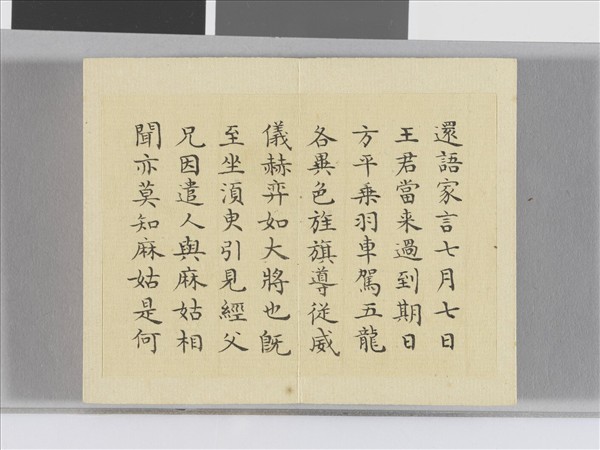 還語家言七月七日
王君當来過到期日
方平乗羽車駕五龍
各異色旌旗導従威
儀赫弈如大將也既
至坐湏臾引見經父
兄因遣人與麻姑相
聞亦莫知麻姑是何